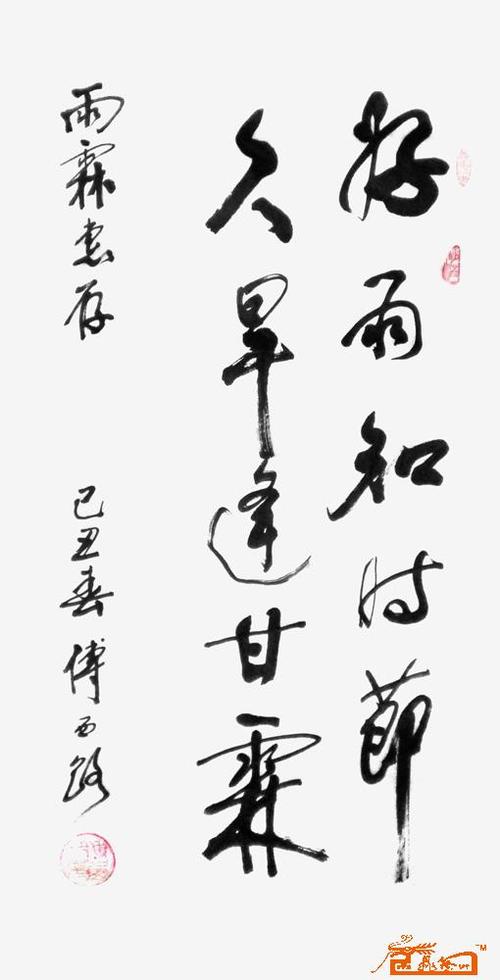 好雨知时節
久旱逢甘霖
雨霖惠存
己丑春 傅西路